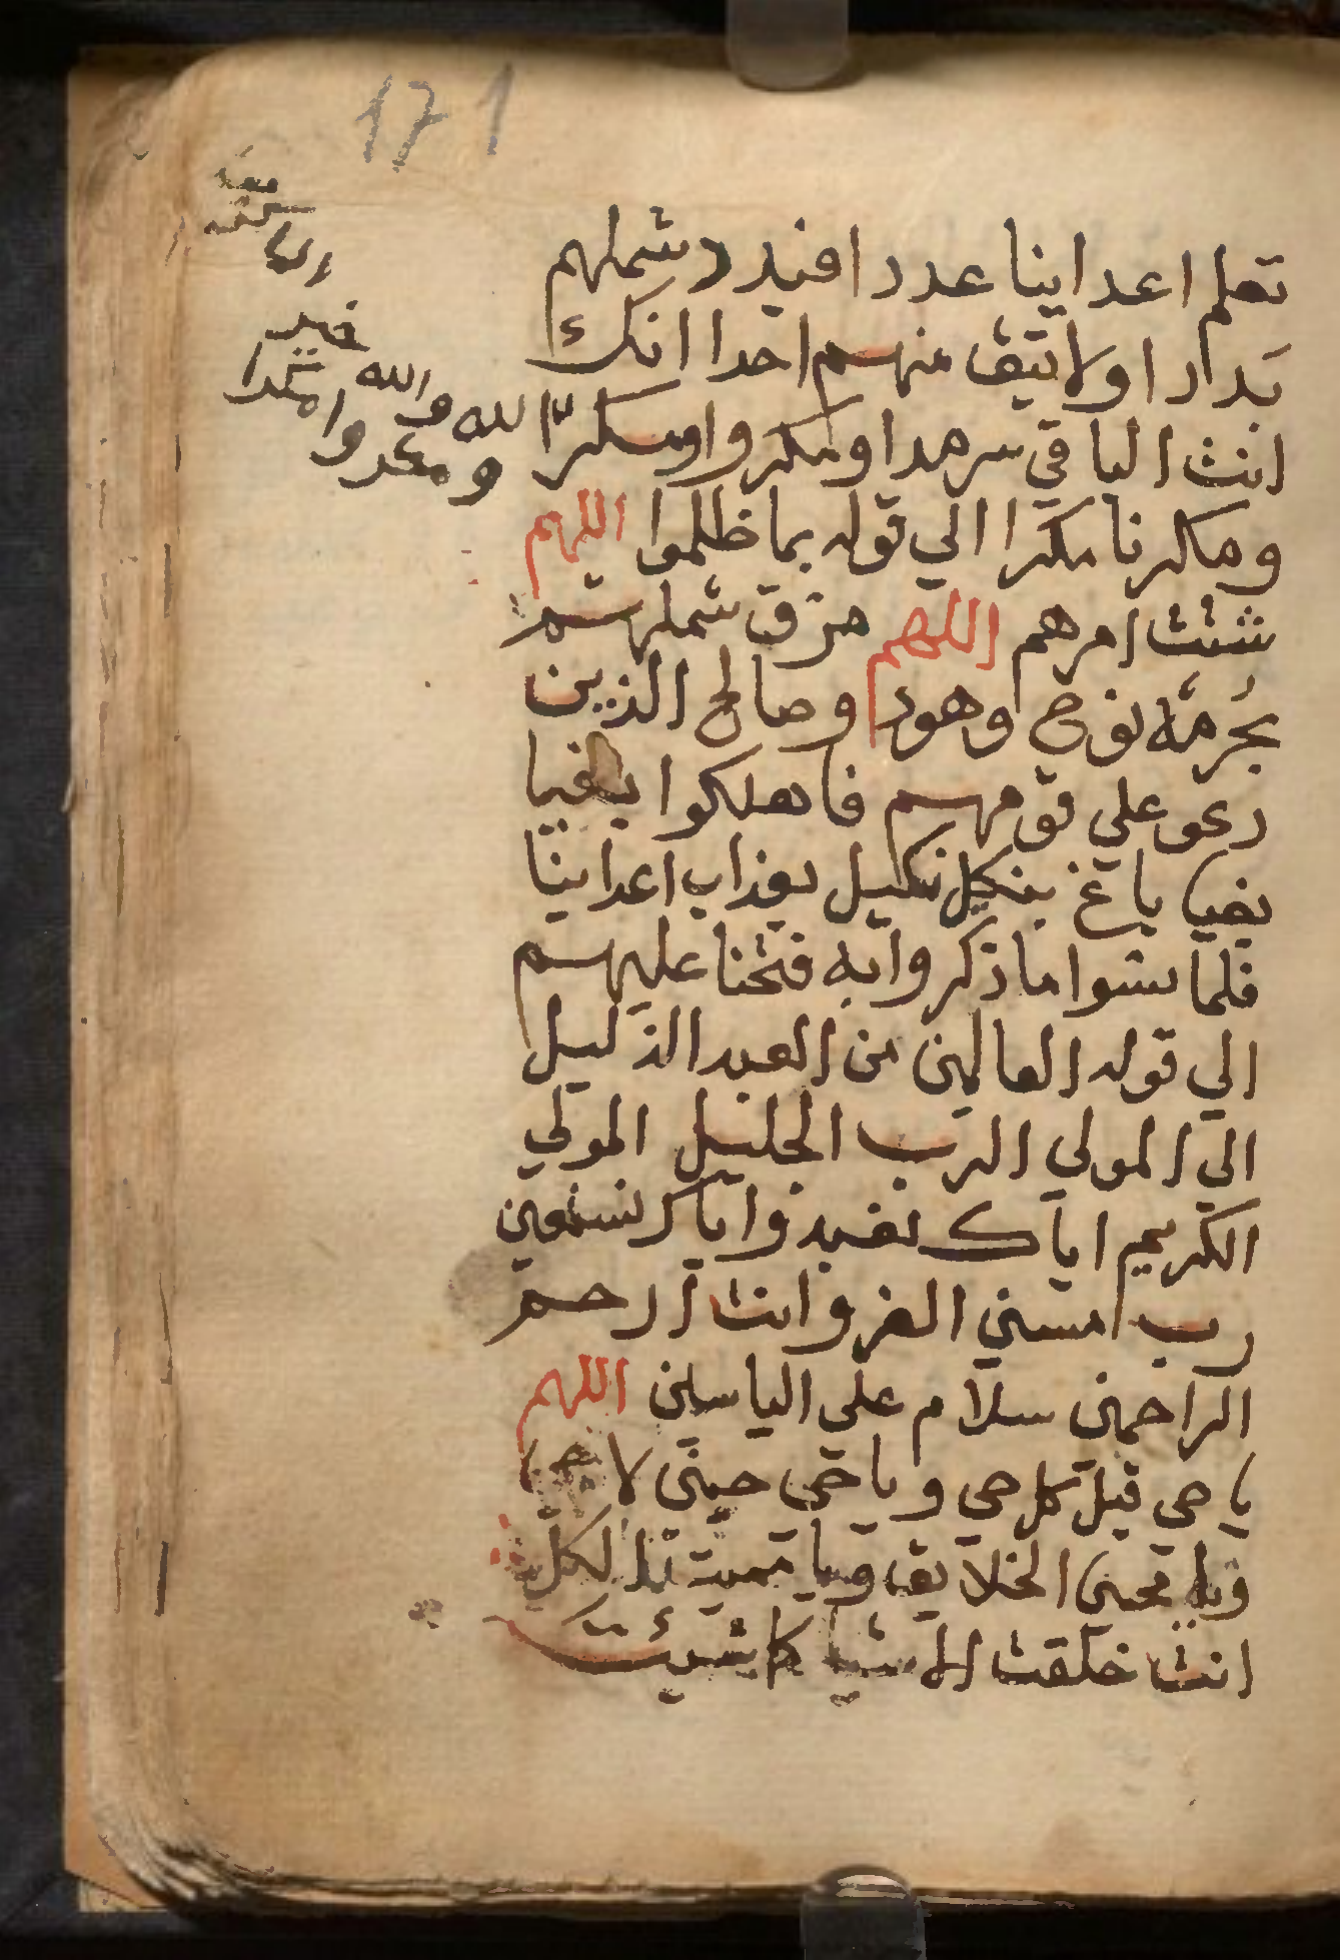 171
تعلم اعداينا عددا فبدد شملهم
بدادا ولا تبق منهم احدا انك
انت الباقي سرمدا ومكروا ومكرا
ومكرنا مكرا الي قوله بما ظلموا اللهم
شتت امرهم اللهم مزق شملهم
بحرمة نوح وهود وصالح الذين
دعو علي قومهم فاهلكوا بغيا
بغيا باغ بنكيل نكيل بعذاب اعداينا
فلما نسوا ما ذكروا به فتحنا عليهم
الي قوله العالمين من العبد الذليل
الي المولي الرب الجليل المولي
الكريم اياك نعبد واياك نستعين
رب مسني الضر وانت ارحم
الراحمين سلام علي الياسين اللهم
يا حي قبل كل حي ويا حي حين لا حي
ويا محيي الخلايق ويا مميت لكل
انت خلقت الاشيا كما شيئت
ومكروا ومكر الله والله خير